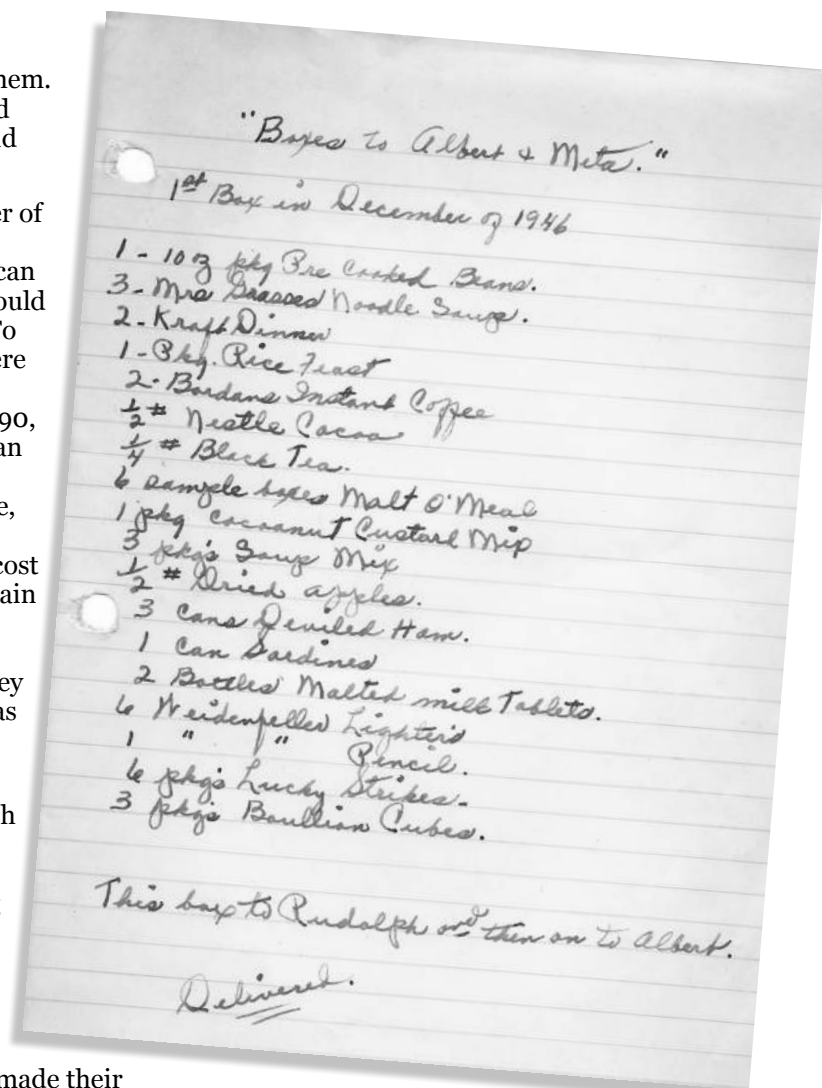 hem.
d
d
er of
can
ould
To
ere
90,
an
e,
cost
ain
ey
as
h
made their
"Boxes to Albert & Meta."
1st Box in December of 1946
1 - 10 oz pkg Pre Cooked Beans.
3 - Mrs Grasses Noodle Soup.
2 - Kraft Dinner
1 - Pkg. Rice Feast
2 - Bordans Instant Coffee
½ # Nestle Cocoa
¼ # Black Tea.
6 sample boxes Malt O'Meal
1 pkg Cocoanut Custard Mix
3 pkg's Soup Mix
½ # Dried apples.
3 Cans Deviled Ham.
1 Can Sardines
2 Bottles Malted milk Tablets.
6 Weidenfeller Lighters
1 " " Pencil.
6 pkg's Lucky Strikes.
3 pkg's Boullion Cubes.
This box to Rudolph and then on to Albert.
Delivered.